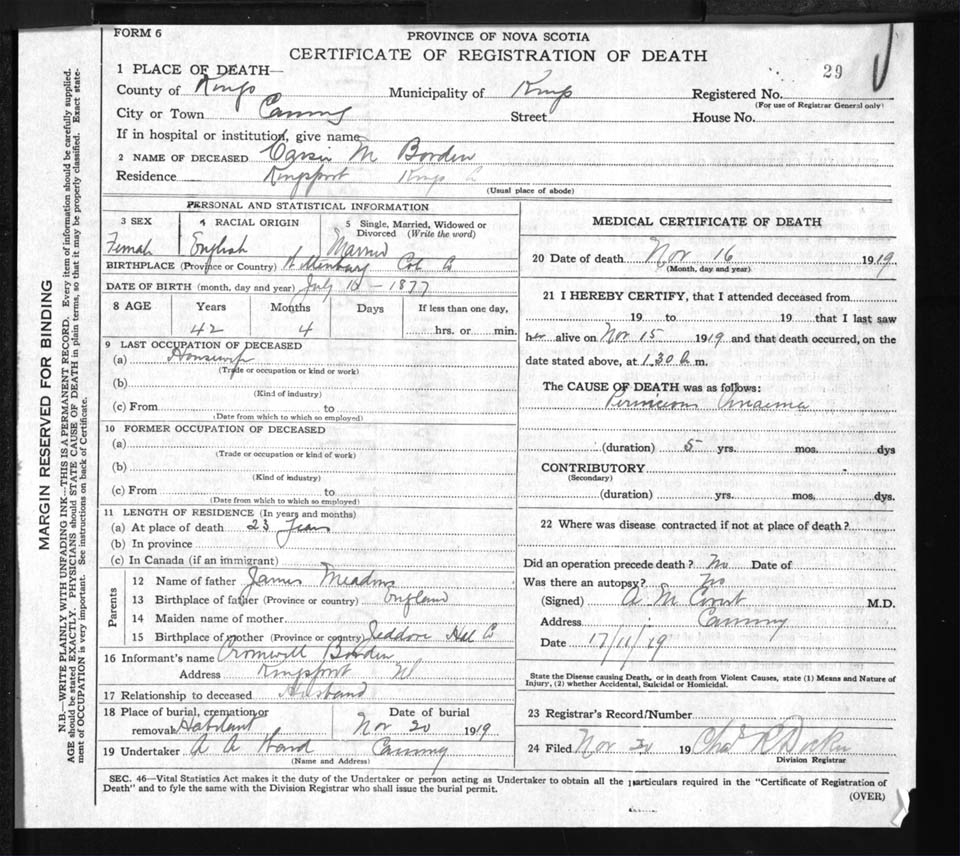 FORM 6
PROVINCE OF NOVA SCOTIA
CERTIFICATE OF REGISTRATION OF DEATH
29
1 PLACE OF DEATH—
County of Kings Municipality of Kings Registered No.
(For use of Registrar General only)
City or Town Canning Street House No.
If in hospital or institution, give name
2 NAME OF DECEASED M Borden
Residence Kingsport Kings Co
(Usual place of abode)
PERSONAL AND STATISTICAL INFORMATION
3 SEX 4 RACIAL ORIGIN 5 Single, Married, Widowed or
Divorced (Write the word)
Female English Married
BIRTHPLACE (Province or Country) Col Co
DATE OF BIRTH (month, day and year) July 16 - 1877
8 AGE Years Months Days If less than one day,
42 4 hrs. or min.
9 LAST OCCUPATION OF DECEASED
(a) Housewife
(Trade or occupation or kind or work)
(b)
(Kind of industry)
(c) From to
(Date from which to which so employed)
10 FORMER OCCUPATION OF DECEASED
(a)
(Trade or occupation or kind of work)
(b)
(Kind of industry)
(c) From to
(Date from which to which so employed)
11 LENGTH OF RESIDENCE (In years and months)
(a) At place of death 23 Years
(b) In province
(c) In Canada (if an immigrant)
Parents
12 Name of father James Meadows
13 Birthplace of father (Province or country) England
14 Maiden name of mother
15 Birthplace of mother (Province or country) Jeddore Hal Co
16 Informant's name Cromwell Borden
Address Kingsport NS
17 Relationship to deceased Husband
18 Place of burial, cremation or Date of burial
removal Habitant Nov 20 1919
19 Undertaker A A Ward Canning
(Name and Address)
MEDICAL CERTIFICATE OF DEATH
20 Date of death Nov 16 1919
(Month, day and year)
21 I HEREBY CERTIFY, that I attended deceased from
19 to 19 that I last saw
her alive on Nov 15 1919 and that death occurred, on the
date stated above, at 1.30 a m.
The CAUSE OF DEATH was as follows:
Pernicious Anaemia
(duration) 5 yrs. mos. dys
CONTRIBUTORY
(Secondary)
(duration) yrs. mos. dys.
22 Where was disease contracted if not at place of death?
Did an operation precede death? No Date of
Was there an autopsy? No
(Signed) A M M.D.
Address Canning
Date 17/11/19
State the Disease causing Death, or in death from Violent Causes, state (1) Means and Nature of
Injury, (2) whether Accidental, Suicidal or Homicidal.
23 Registrar's Record/Number
24 Filed Nov 20 19 Chas R
Division Registrar
SEC. 46—Vital Statistics Act makes it the duty of the Undertaker or person acting as Undertaker to obtain all the particulars required in the "Certificate of Registration of
Death" and to fyle the same with the Division Registrar who shall issue the burial permit.
(OVER)
MARGIN RESERVED FOR BINDING
N.B.—WRITE PLAINLY WITH UNFADING INK—THIS IS A PERMANENT RECORD. Every item of information should be carefully supplied.
AGE should be stated EXACTLY. PHYSICIANS should STATE CAUSE OF DEATH in plain terms, so that it may be properly classified. Exact state-
ment of OCCUPATION is very important. See instructions on back of Certificate.